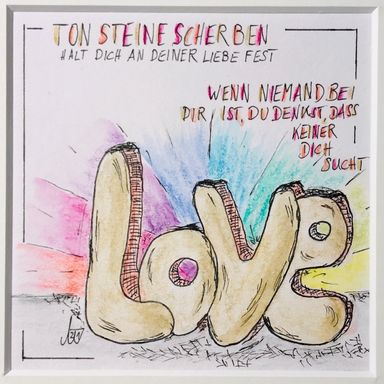 TON STEINE SCHERBEN
HALT DICH AN DEINER LIEBE FEST
WENN NIEMAND BEI
DIR IST, DU DENKST, DASS
KEINER
DICH
SUCHT
LOVE